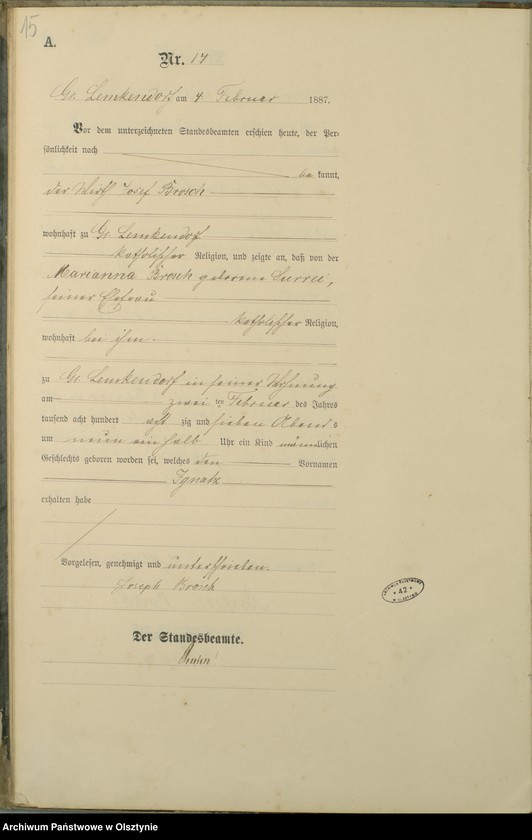 15
A.
Nr. 17
Gr. Lemkendorf am 4 Februar 1887.
Vor dem unterzeichneten Standesbeamten erschien heute, der Per-
sönlichkeit nach
be kannt,
der Wirth Josef Brosch
wohnhaft zu Gr. Lemkendorf
katholischer Religion, und zeigte an, daß von der
Marianna Brosch geborene
seiner Ehefrau
katholischer Religion,
wohnhaft bei ihm
zu Gr. Lemkendorf in seiner Wohnung
am zwei ten Februar des Jahres
tausend acht hundert acht zig und sieben Abends
um neun ein halb Uhr ein Kind männlichen
Geschlechts geboren worden sei, welches den Vornamen
Ignatz
erhalten habe
Vorgelesen, genehmigt und unterschrieben.
Joseph Brosch
Der Standesbeamte.
42
Archiwum Państwowe w Olsztynie